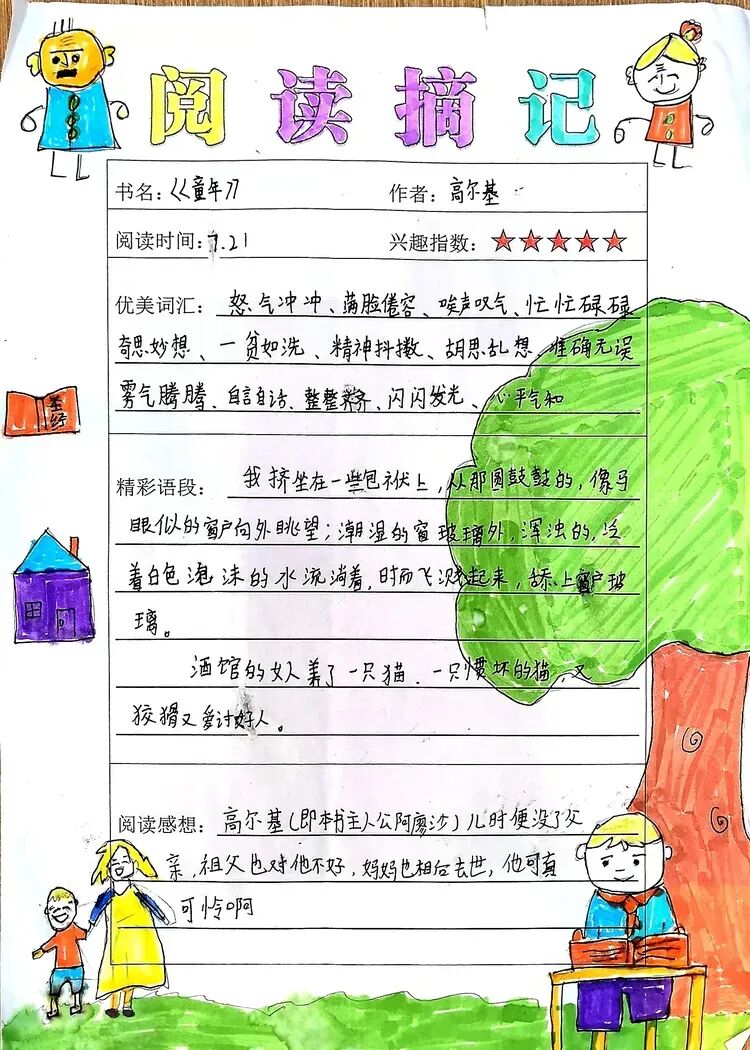 阅读摘记
书名：《童年》 作者：高尔基
阅读时间：7.21 兴趣指数：★★★★★
优美词汇：怒气冲冲、满脸倦容、唉声叹气、忙忙碌碌
奇思妙想、一贫如洗、精神抖擞、胡思乱想、准确无误
雾气腾腾、自言自语、整整齐齐、闪闪发光、心平气和
圣经
精彩语段：我挤坐在一些包袱上，从那圆鼓鼓的，像马
眼似的窗户向外眺望；潮湿的窗玻璃外，浑浊的，泛
着白色泡沫的水流淌着，时而飞溅起来，舔上窗户玻
璃。
酒馆的女人养了一只猫，一只惯坏的猫，又
狡猾又爱讨好人。
阅读感想：高尔基（即本书主人公阿廖沙）儿时便没了父
亲，祖父也对他不好，妈妈也相后去世，他可真
可怜啊